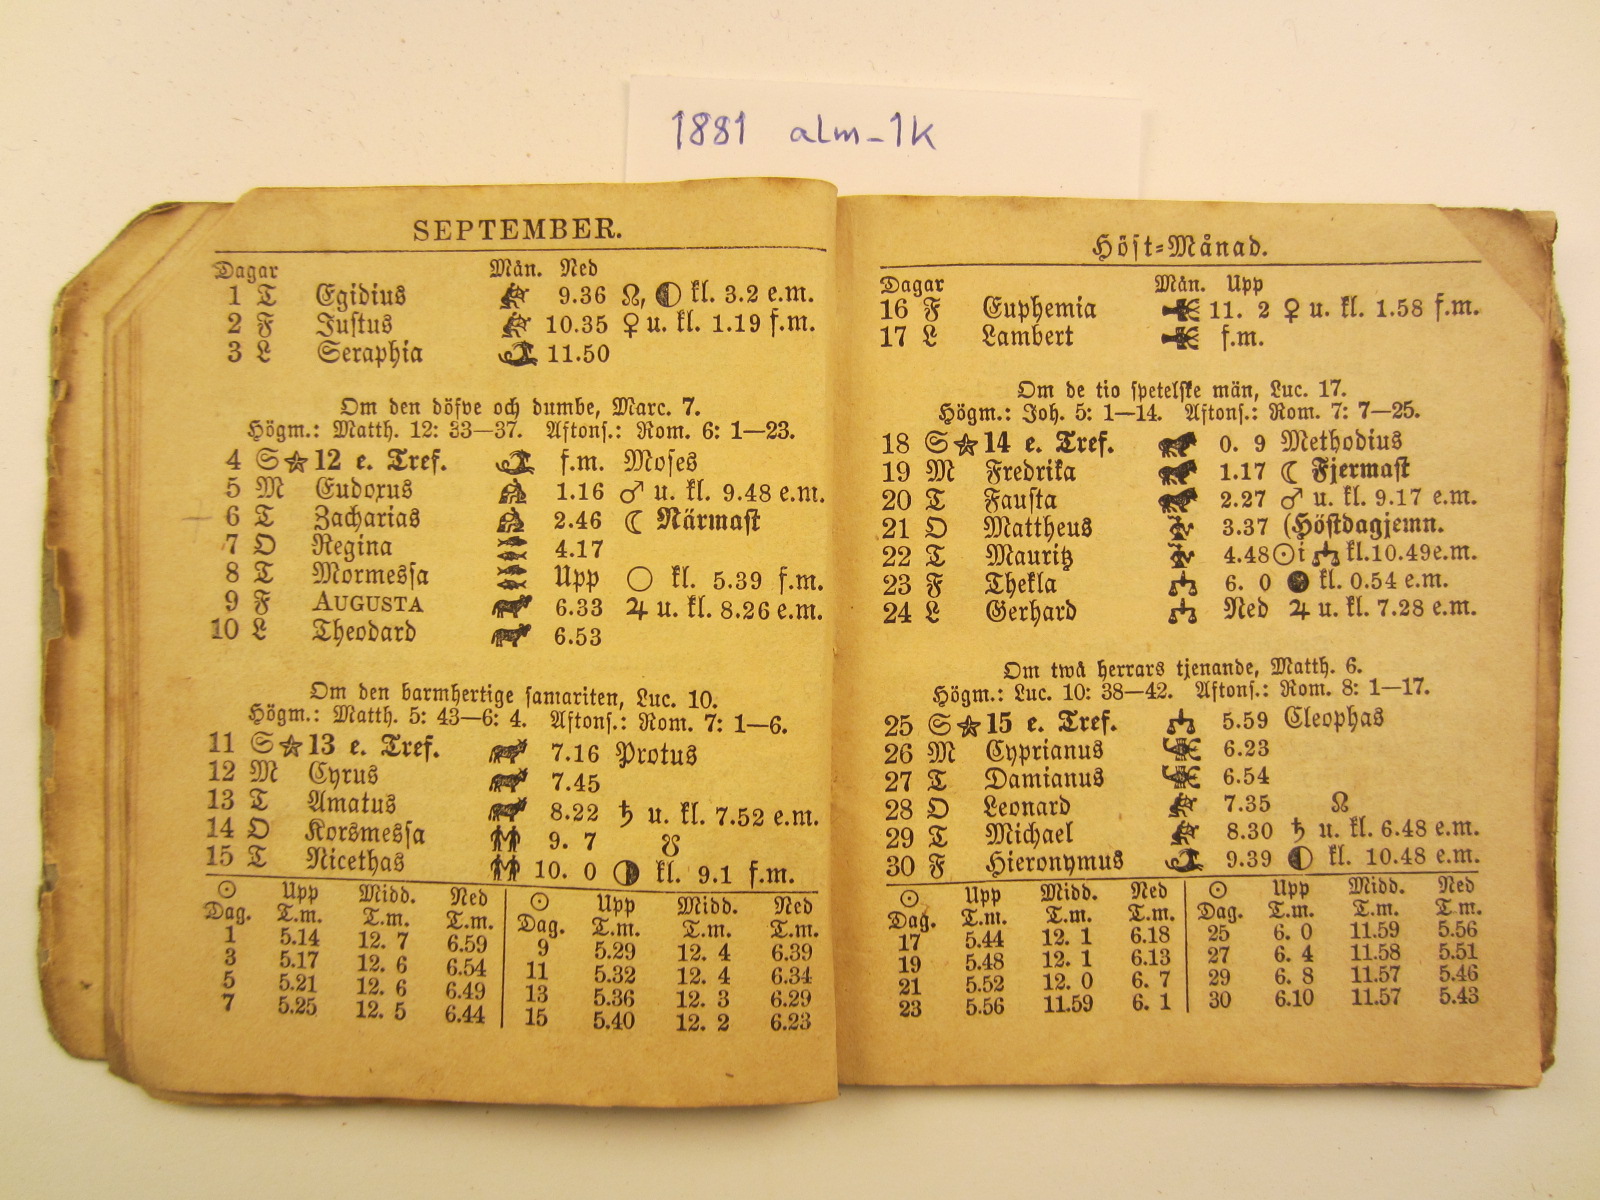 1881 alm-1k
SEPTEMBER.
Dagar Mån. Ned
1 T Egidius 9.36 ☊, ◐ kl. 3.2 e.m.
2 F Justus 10.35 ♀ u. kl. 1.19 f.m.
3 L Seraphia 11.50
Om den döfve och dumbe, Marc. 7.
Högm.: Matth. 12: 33—37. Aftons.: Rom. 6: 1—23.
4 S ☆ 12 e. Tref. f.m. Moses
5 M Eudoxus 1.16 ♂ u. kl. 9.48 e.m.
6 T Zacharias 2.46 ☾ Närmast
7 O Regina 4.17
8 T Mormessa Upp ○ kl. 5.39 f.m.
9 F AUGUSTA 6.33 ♃ u. kl. 8.26 e.m.
10 L Theodard 6.53
Om den barmhertige samariten, Luc. 10.
Högm.: Matth. 5: 43—6: 4. Aftons.: Rom. 7: 1—6.
11 S ☆ 13 e. Tref. 7.16 Protus
12 M Cyrus 7.45
13 T Amatus 8.22 ♄ u. kl. 7.52 e.m.
14 O Korsmessa 9. 7 ☋
15 T Nicethas 10. 0 ◑ kl. 9.1 f.m.
☉ Upp Midd. Ned ☉ Upp Midd. Ned
Dag. T.m. T.m. T.m. Dag. T.m. T.m. T.m.
1 5.14 12. 7 6.59 9 5.29 12. 4 6.39
3 5.17 12. 6 6.54 11 5.32 12. 4 6.34
5 5.21 12. 6 6.49 13 5.36 12. 3 6.29
7 5.25 12. 5 6.44 15 5.40 12. 2 6.23
Höst-Månad.
Dagar Mån. Upp
16 F Euphemia 11. 2 ♀ u. kl. 1.58 f.m.
17 L Lambert f.m.
Om de tio spetelske män, Luc. 17.
Högm.: Joh. 5: 1—14. Aftons.: Rom. 7: 7—25.
18 S ☆ 14 e. Tref. 0. 9 Methodius
19 M Fredrika 1.17 ☾ Fjermast
20 T Fausta 2.27 ♂ u. kl. 9.17 e.m.
21 O Mattheus 3.37 (Höstdagjemn.
22 T Mauritz 4.48 ☉ i ♎ kl. 10.49 e.m.
23 F Thekla 6. 0 ● kl. 0.54 e.m.
24 L Gerhard Ned ♃ u. kl. 7.28 e.m.
Om twå herrars tjenande, Matth. 6.
Högm.: Luc. 10: 38—42. Aftons.: Rom. 8: 1—17.
25 S ☆ 15 e. Tref. 5.59 Cleophas
26 M Cyprianus 6.23
27 T Damianus 6.54
28 O Leonard 7.35 ☊
29 T Michael 8.30 ♄ u. kl. 6.48 e.m.
30 F Hieronymus 9.39 ◐ kl. 10.48 e.m.
☉ Upp Midd. Ned ☉ Upp Midd. Ned
Dag. T.m. T.m. T.m. Dag. T.m. T.m. T.m.
17 5.44 12. 1 6.18 25 6. 0 11.59 5.56
19 5.48 12. 1 6.13 27 6. 4 11.58 5.51
21 5.52 12. 0 6. 7 29 6. 8 11.57 5.46
23 5.56 11.59 6. 1 30 6.10 11.57 5.43